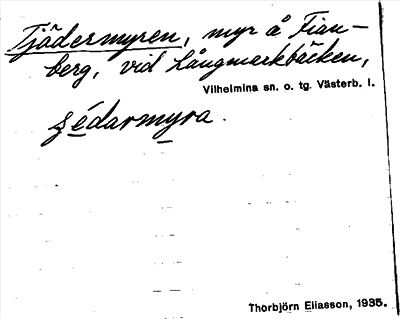 Tjädermyren, myr å Fian-
berg, vid Långmarkbäcken,
Vilhelmina sn. o. tg. Västerb. l.
ʒédarmyra.
Thorbjörn Eliasson, 1935.